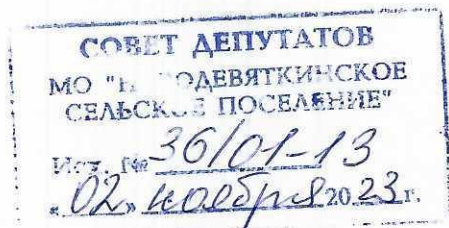 СОВЕТ ДЕПУТАТОВ
МО "Н ОДЕВЯТКИНСКОЕ
СЕЛЬСКОЕ ПОСЕЛЕНИЕ"
Исх. № 36/01-13
"02" ноября 2023 г.